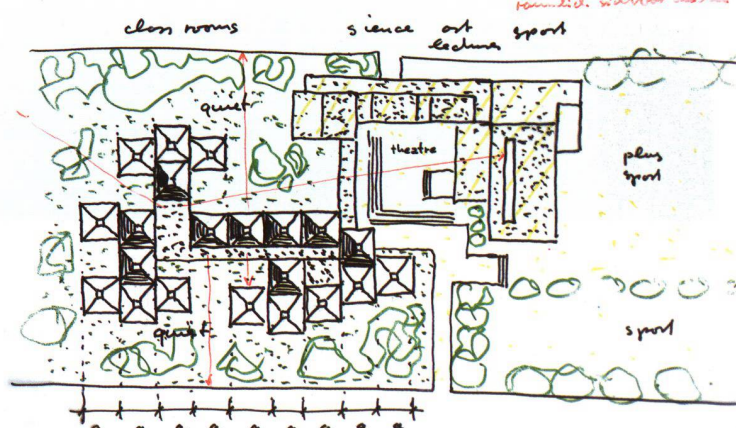 class rooms
science art
lectures
sport
quiet
theatre
plus
sport
quiet
sport